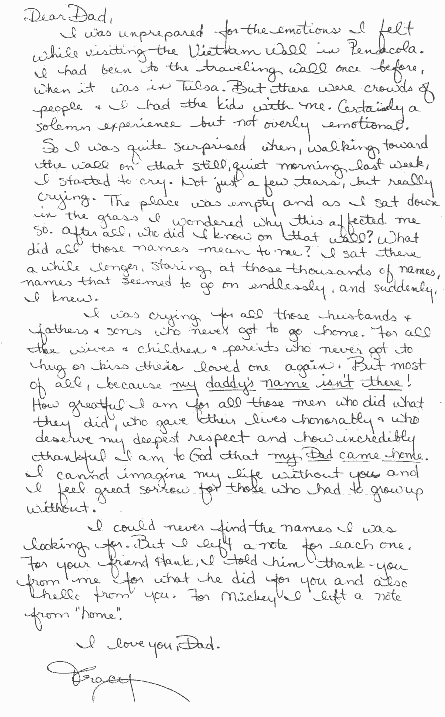 Dear Dad,
I was unprepared for the emotions I felt
while visiting the Vietnam Wall in Penacola.
I had been to the traveling wall once before,
when it was in Tulsa. But there were crowds of
people & I had the kids with me. Certainly a
solemn experience but not overly emotional.
So I was quite surprised when, walking toward
the wall on that still, quiet morning last week,
I started to cry. Not just a few tears, but really
crying. The place was empty and as I sat down
in the grass I wondered why this affected me
so. After all, who did I know on that wall? What
did all those names mean to me? I sat there
a while longer, staring at those thousands of names,
names that seemed to go on endlessly, and suddenly,
I knew.
I was crying for all those husbands &
fathers & sons who never got to go home. For all
the wives & children & parents who never got to
hug or kiss their loved one again. But most
of all, because my daddy's name isn't there!
How greatful I am for all those men who did what
they did, who gave their lives honorably & who
deserve my deepest respect and how incredibly
thankful I am to God that my Dad came home.
I cannot imagine my life without you and
I feel great sorrow for those who had to grow up
without.
I could never find the names I was
looking for. But I left a note for each one.
For your friend Hank, I told him thank-you
from me for what he did for you and also
hello from you. For Mickey I left a note
from "home".
I love you, Dad.
Tracy